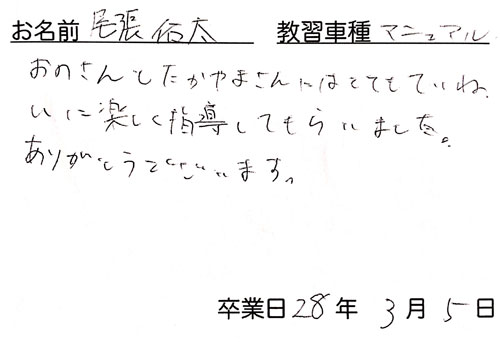 お名前 尾張 佑太 教習車種 マニュアル
おのさんとたかやまさんにはとてもていね
いに楽しく指導してもらいました。
ありがとうございます。
卒業日 28 年 3 月 5 日